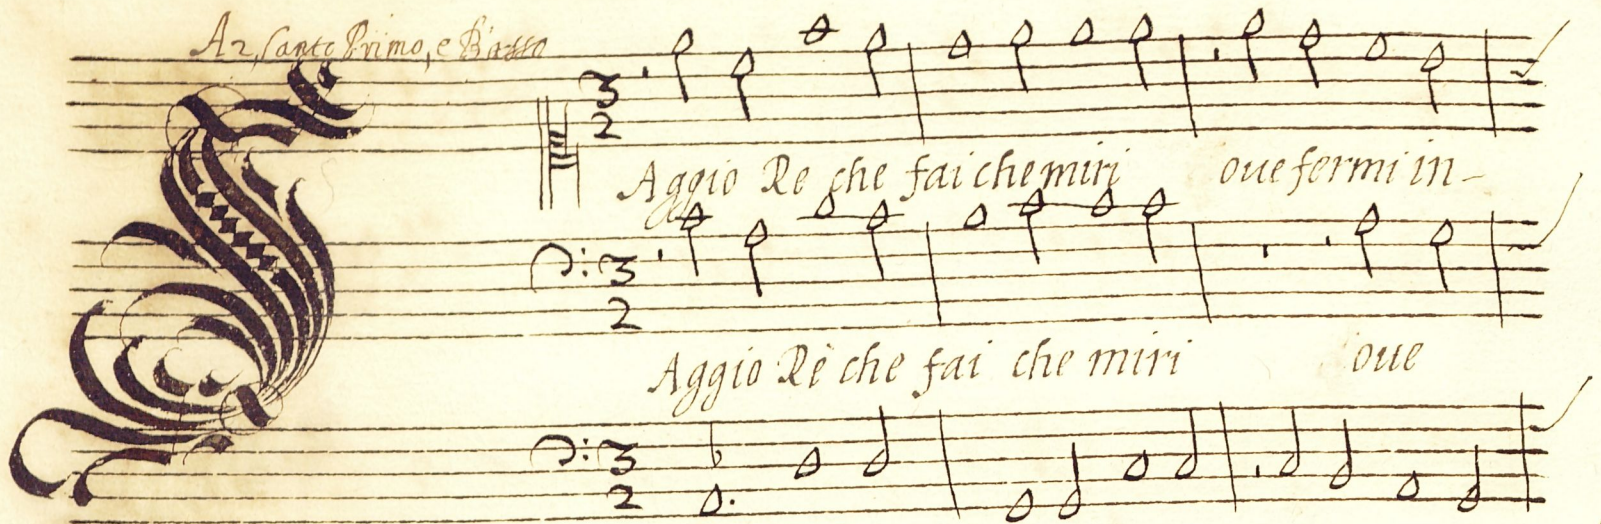 A 2, Canto Primo, e Basso
S
3
2
Aggio Re che fai che miri oue fermi in-
3
2
Aggio Rè che fai che miri oue
3
2